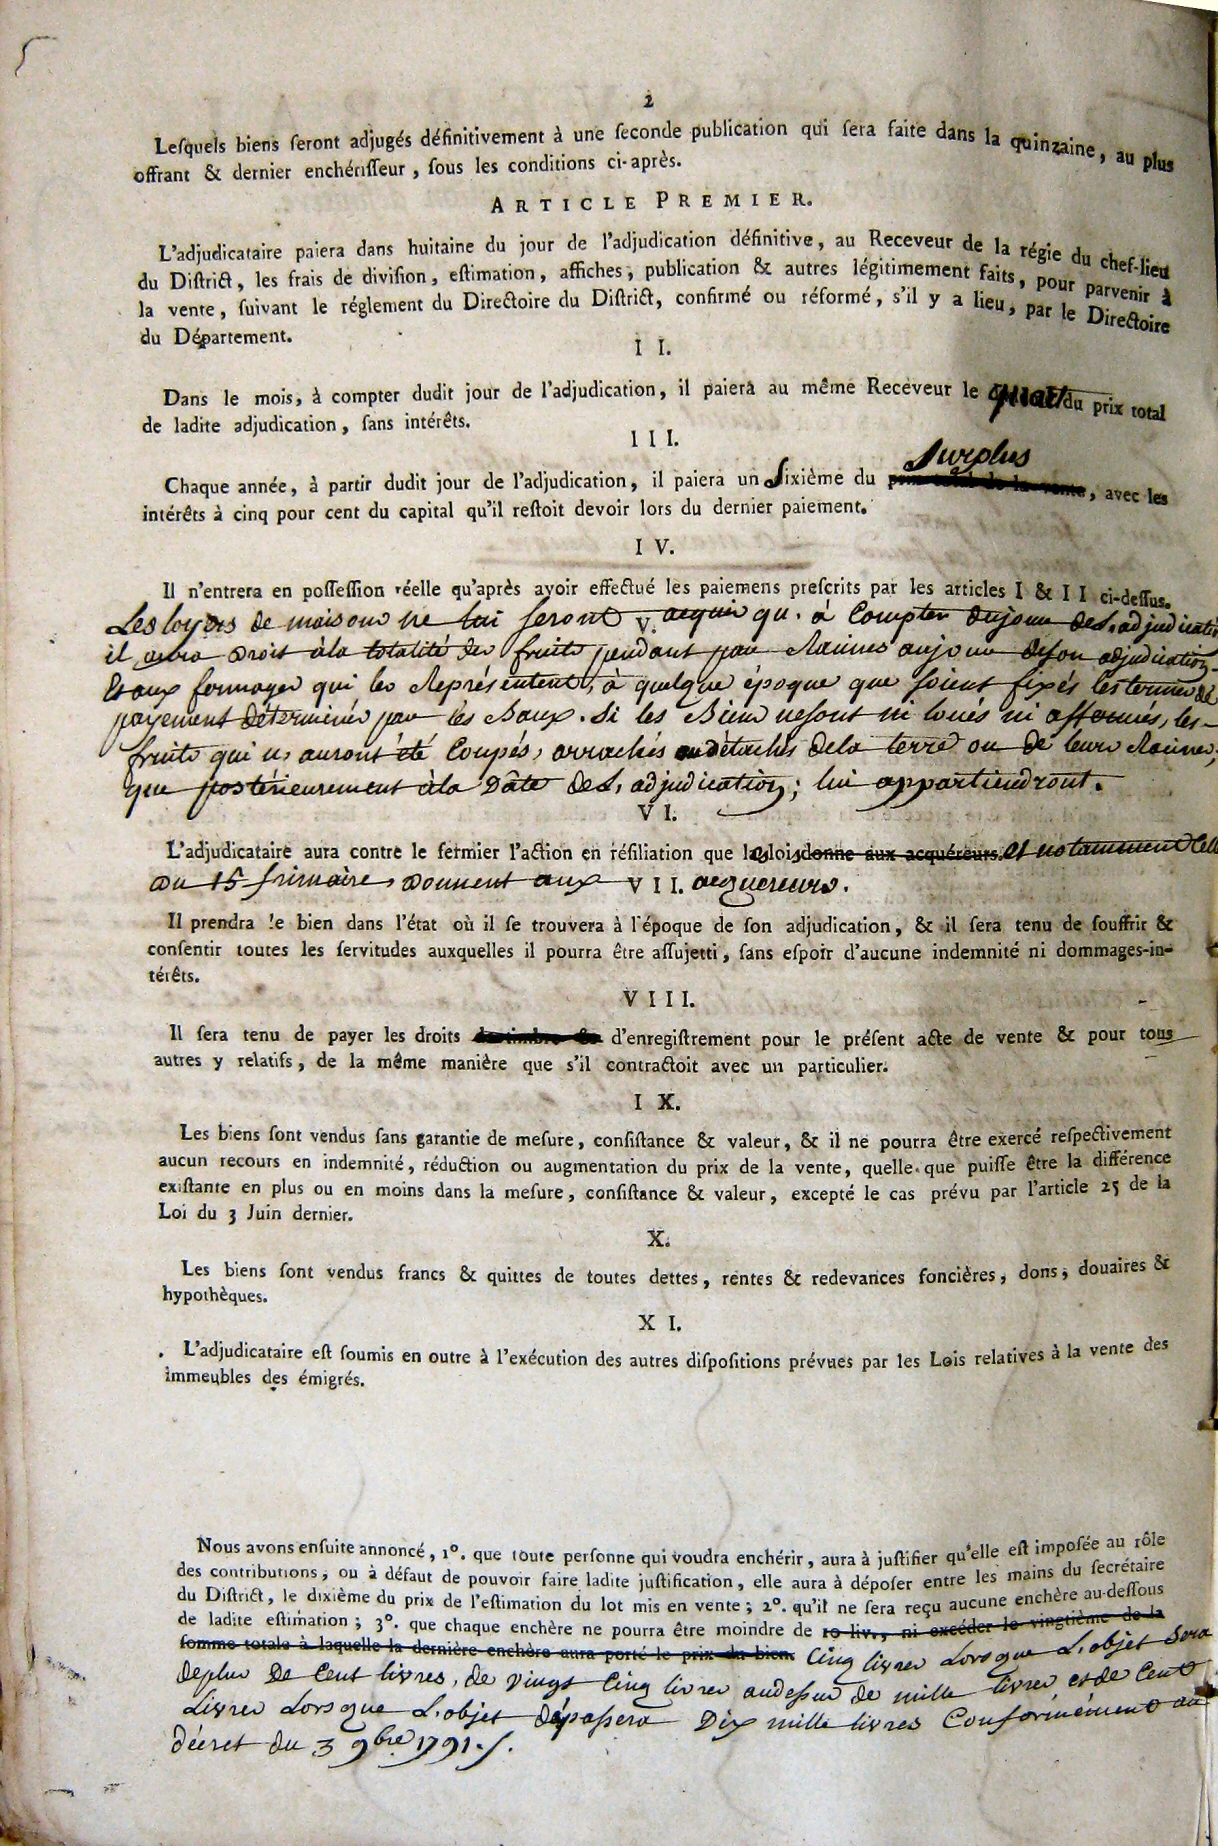 2
Lesquels biens seront adjugés définitivement à une seconde publication qui sera faite dans la quinzaine, au plus
offrant & dernier enchérisseur, sous les conditions ci-après.
ARTICLE PREMIER.
L'adjudicataire paiera dans huitaine du jour de l'adjudication définitive, au Receveur de la régie du chef-lieu
du District, les frais de division, estimation, affiches, publication & autres légitimement faits, pour parvenir à
la vente, suivant le réglement du Directoire du District, confirmé ou réformé, s'il y a lieu, par le Directoire
du Département.
II.
Dans le mois, à compter dudit jour de l'adjudication, il paiera au même Receveur le quart du prix total
de ladite adjudication, sans intérêts.
III.
Surplus
Chaque année, à partir dudit jour de l'adjudication, il paiera un Sixième du prix total de la vente, avec les
intérêts à cinq pour cent du capital qu'il restoit devoir lors du dernier paiement.
IV.
Il n'entrera en possession réelle qu'après avoir effectué les paiemens prescrits par les articles I & II ci-dessus.
Les loyers de maisons ne lui seront acquis qu'à Compter du jour de L'adjudication
V.
il aura Droit à la totalité des fruits pendants par Racines au jour de son adjudication
Et aux fermages qui les Représentent, à quelque époque que soient fixés les termes de
payement déterminés par les Baux. Si les Biens ne sont ni loués ni affermés, les
fruits qui n'auront été Coupés, arrachés ou détachés de la terre ou de leurs Racines,
que postérieurement à la Date de L'adjudication; lui appartiendront.
VI.
L'adjudicataire aura contre le fermier l'action en résiliation que les lois donne aux acquéreurs. et notamment Celle
du 15 frimaire, donnent aux acquereurs.
VII.
Il prendra le bien dans l'état où il se trouvera à l'époque de son adjudication, & il sera tenu de souffrir &
consentir toutes les servitudes auxquelles il pourra être assujetti, sans espoir d'aucune indemnité ni dommages-in-
térêts.
VIII.
Il sera tenu de payer les droits de timbre & d'enregistrement pour le présent acte de vente & pour tous
autres y relatifs, de la même manière que s'il contractoit avec un particulier.
IX.
Les biens sont vendus sans garantie de mesure, consistance & valeur, & il ne pourra être exercé respectivement
aucun recours en indemnité, réduction ou augmentation du prix de la vente, quelle que puisse être la différence
existante en plus ou en moins dans la mesure, consistance & valeur, excepté le cas prévu par l'article 25 de la
Loi du 3 Juin dernier.
X.
Les biens sont vendus francs & quittes de toutes dettes, rentes & redevances foncières, dons, douaires &
hypothèques.
XI.
L'adjudicataire est soumis en outre à l'exécution des autres dispositions prévues par les Lois relatives à la vente des
immeubles des émigrés.
Nous avons ensuite annoncé, 1°. que toute personne qui voudra enchérir, aura à justifier qu'elle est imposée au rôle
des contributions, ou à défaut de pouvoir faire ladite justification, elle aura à déposer entre les mains du secrétaire
du District, le dixième du prix de l'estimation du lot mis en vente; 2°. qu'il ne sera reçu aucune enchère au-dessous
de ladite estimation; 3°. que chaque enchère ne pourra être moindre de 10 liv., ni excéder le vingtième de la
somme totale à laquelle la dernière enchère aura porté le prix du bien. Cinq livres Lorsque L'objet Sera
de plus De Cent livres, de Vingt Cinq livres au dessus de mille livres et de Cent
Livres Lorsque L'objet dépassera Dix mille livres Conformément au
décret du 3 9bre 1791.